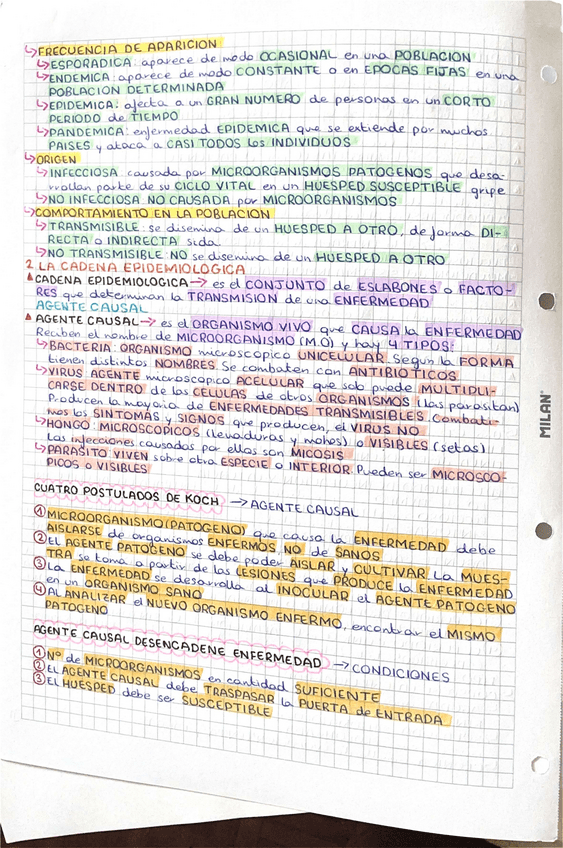 ↳FRECUENCIA DE APARICION
↳ESPORADICA: aparece de modo OCASIONAL en una POBLACION
↳ENDEMICA: aparece de modo CONSTANTE o en EPOCAS FIJAS en una
POBLACION DETERMINADA
↳EPIDEMICA: afecta a un GRAN NUMERO de personas en un CORTO
PERIODO de TIEMPO
↳PANDEMICA: enfermedad EPIDEMICA que se extiende por muchos
PAISES y ataca a CASI TODOS los INDIVIDUOS
↳ORIGEN
↳INFECCIOSA: causada por MICROORGANISMOS PATOGENOS que desa-
rrollan parte de su CICLO VITAL en un HUESPED SUSCEPTIBLE gripe
↳NO INFECCIOSA NO CAUSADA por MICROORGANISMOS
↳COMPORTAMIENTO EN LA POBLACION
↳TRANSMISIBLE: se disemina de un HUESPED A OTRO, de forma DI-
RECTA o INDIRECTA sida
↳NO TRANSMISIBLE: NO se disemina de un HUESPED A OTRO
2. LA CADENA EPIDEMIOLOGICA
▲CADENA EPIDEMIOLOGICA→ es el CONJUNTO de ESLABONES o FACTO-
RES que determinan la TRANSMISION de una ENFERMEDAD
AGENTE CAUSAL
▲AGENTE CAUSAL→ es el ORGANISMO VIVO que CAUSA la ENFERMEDAD
Reciben el nombre de MICROORGANISMO (M.O) y hay 4 TIPOS:
↳BACTERIA: ORGANISMO microscopico UNICELULAR. Segun la FORMA
tienen distintos NOMBRES. Se combaten con ANTIBIOTICOS
↳VIRUS AGENTE microscopico ACELULAR que solo puede MULTIPLI-
CARSE DENTRO de las CELULAS de otros ORGANISMOS (las parasitan)
Producen la mayoria de ENFERMEDADES TRANSMISIBLES. Combati-
mos los SINTOMAS y SIGNOS que producen, el VIRUS NO
↳HONGO: MICROSCOPICOS (levaduras y mohos) o VISIBLES (setas)
Las infecciones causadas por ellos son MICOSIS
↳PARASITO VIVEN sobre otra ESPECIE o INTERIOR. Pueden ser MICROSCO-
PICOS o VISIBLES
CUATRO POSTULADOS DE KOCH → AGENTE CAUSAL
① MICROORGANISMO (PATOGENO) que causa la ENFERMEDAD debe
AISLARSE de organismos ENFERMOS, NO de SANOS
② EL AGENTE PATOGENO se debe poder AISLAR y CULTIVAR. La MUES-
TRA se toma a partir de las LESIONES que PRODUCE la ENFERMEDAD
③ LA ENFERMEDAD se desarrolla al INOCULAR el AGENTE PATOGENO
en un ORGANISMO SANO
④ AL ANALIZAR el NUEVO ORGANISMO ENFERMO, encontrar el MISMO
PATOGENO
AGENTE CAUSAL DESENCADENE ENFERMEDAD → CONDICIONES
① Nº de MICROORGANISMOS en cantidad SUFICIENTE
② EL AGENTE CAUSAL debe TRASPASAR la PUERTA de ENTRADA
③ EL HUESPED debe ser SUSCEPTIBLE
MILAN